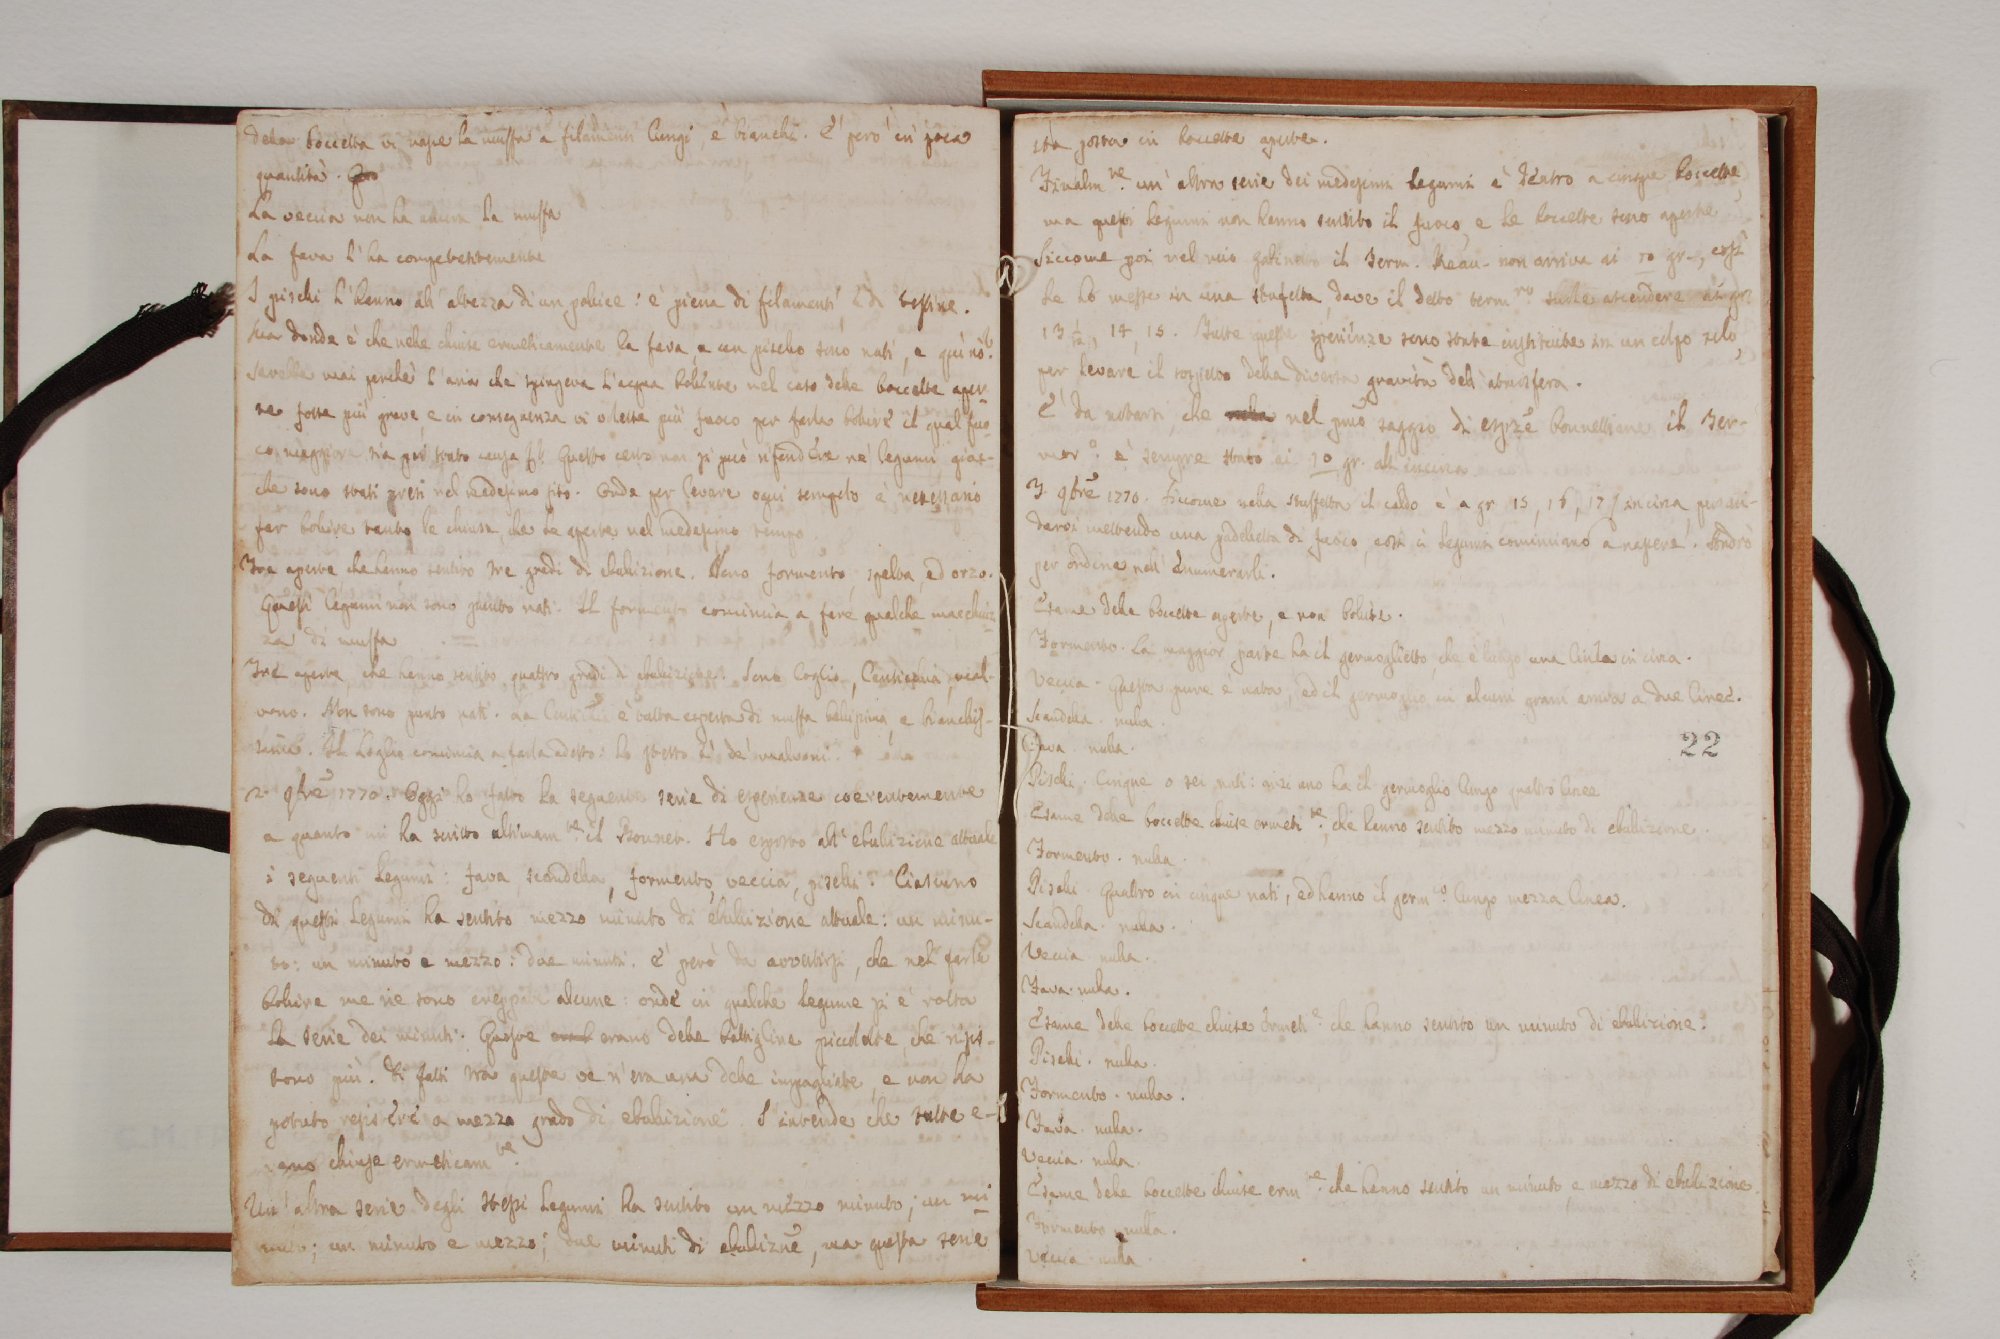 della boccetta vi nasce la muffa a filamenti lungi, e bianchi. E' però in poca
quantità.
La veccia non ha ancora la muffa
La fava l'ha competentemente
I piselli l'hanno all'altezza di un pollice: è piena di filamenti, e di testine.
Ma donde è che nelle chiuse ermeticamente la fava, e un pisello sono nati, e quì nò?
Sarebbe mai perchè l'aria che spingeva l'acqua bollente nel caso delle boccette aper-
te fosse più grave, e in conseguenza vi volesse più fuoco per farla bollire il qual fuo-
co maggiore sia poi stato causa Questo certo non si può rifondere ne' legumi giac-
che sono stati presi nel medesimo sito. Onde per levare ogni scrupolo è necessario
far bollire tanto le chiuse, che le aperte nel medesimo tempo.
Tre aperte, che hanno sentito tre gradi di ebullizione. Sono formento, spelta, ed orzo.
Questi legumi non sono punto nati. Il formento comincia a fare qualche macchiuz-
za di muffa
Tre aperte, che hanno sentito quattro gradi di ebullizione. Sono Loglio, Centichia,
Non sono punto nati. La è tutta coperta di muffa bellissima, e bianchis-
sima. Il Loglio comincia a farla adesso: lo stesso dì de'
2. 9bre 1770. Oggi ho fatto la seguente serie di esperienze coerentemente
a quanto mi ha scritto ultimamte il Bonnet. Ho esposto all'ebullizione attuale
i seguenti legumi: fava, scandella, formento, veccia, piselli. Ciascuno
di questi legumi ha sentito mezzo minuto di ebullizione attuale: un minu-
to: un minuto e mezzo: due minuti. E' però da avvertirsi, che nel farle
bollire me ne sono creppate alcune: onde in qualche legume si è rotta
la serie dei minuti. Queste erano delle bottigline piccolette, che resis-
tono più. Di fatti tra queste ve n'era una delle impagliate, e non ha
potuto resistere a mezzo grado di ebullizione. S'intende che tutte e-
rano chiuse ermeticamte.
Un'altra serie degli stessi legumi ha sentito un mezzo minuto; un mi
nuto; un minuto e mezzo; due minuti di ebulizne, ma questa serie
sta posta in boccette aperte.
Finalmte. un'altra serie dei medesimi legumi è dentro a cinque boccette,
ma questi legumi non hanno sentito il fuoco, e le boccette sono aperte
Siccome poi nel mio gabinetto il Term. Reau- non arriva ai 10 gr-, così
le ho messe in una stuffetta, dove il detto termro suole ascendere ai gr.
13 1/2, 14, 15. Tutte queste sperienze sono state instituite in un colpo solo,
per levare il sospetto della diversa gravità dell'atmosfera.
E' da notarsi, che nel pmo saggio di espze bonnettiane il Ter-
mor.o è sempre stato ai 10 gr. all'incirca
3. 9bre 1770. Siccome nella stuffetta il caldo è a gr. 15, 16, 17 incirca,
mettendo una padelletta di fuoco, così i legumi cominciano a nascere. Andrò
per ordine nell'enumerarli.
Esame delle boccette aperte, e non bollite.
Formento. La maggior parte ha il germoglietto, che è lungo una linea in circa.
Veccia. Questa pure è nata, ed il germoglio in alcuni grani arriva a due linee.
Scandella. nulla.
Fava. nulla.
22
Piselli. Cinque o sei nati: anzi uno ha il germoglio lungo quattro linee
Esame delle boccette chiuse ermetite, che hanno sentito mezzo minuto di ebullizione.
Formento. nulla.
Piselli. Quattro in cinque nati, ed hanno il germo. lungo mezza linea.
Scandella. nulla.
Veccia nulla.
Fava. nulla.
Esame delle boccette chiuse ermete. che hanno sentito un minuto di ebulizione.
Piselli. nulla.
Formento. nulla.
Fava. nulla.
Veccia. nulla.
Esame delle boccette chiuse ermte. che hanno sentito un minuto e mezzo di ebulizione.
Formento. nulla.
Veccia nulla.